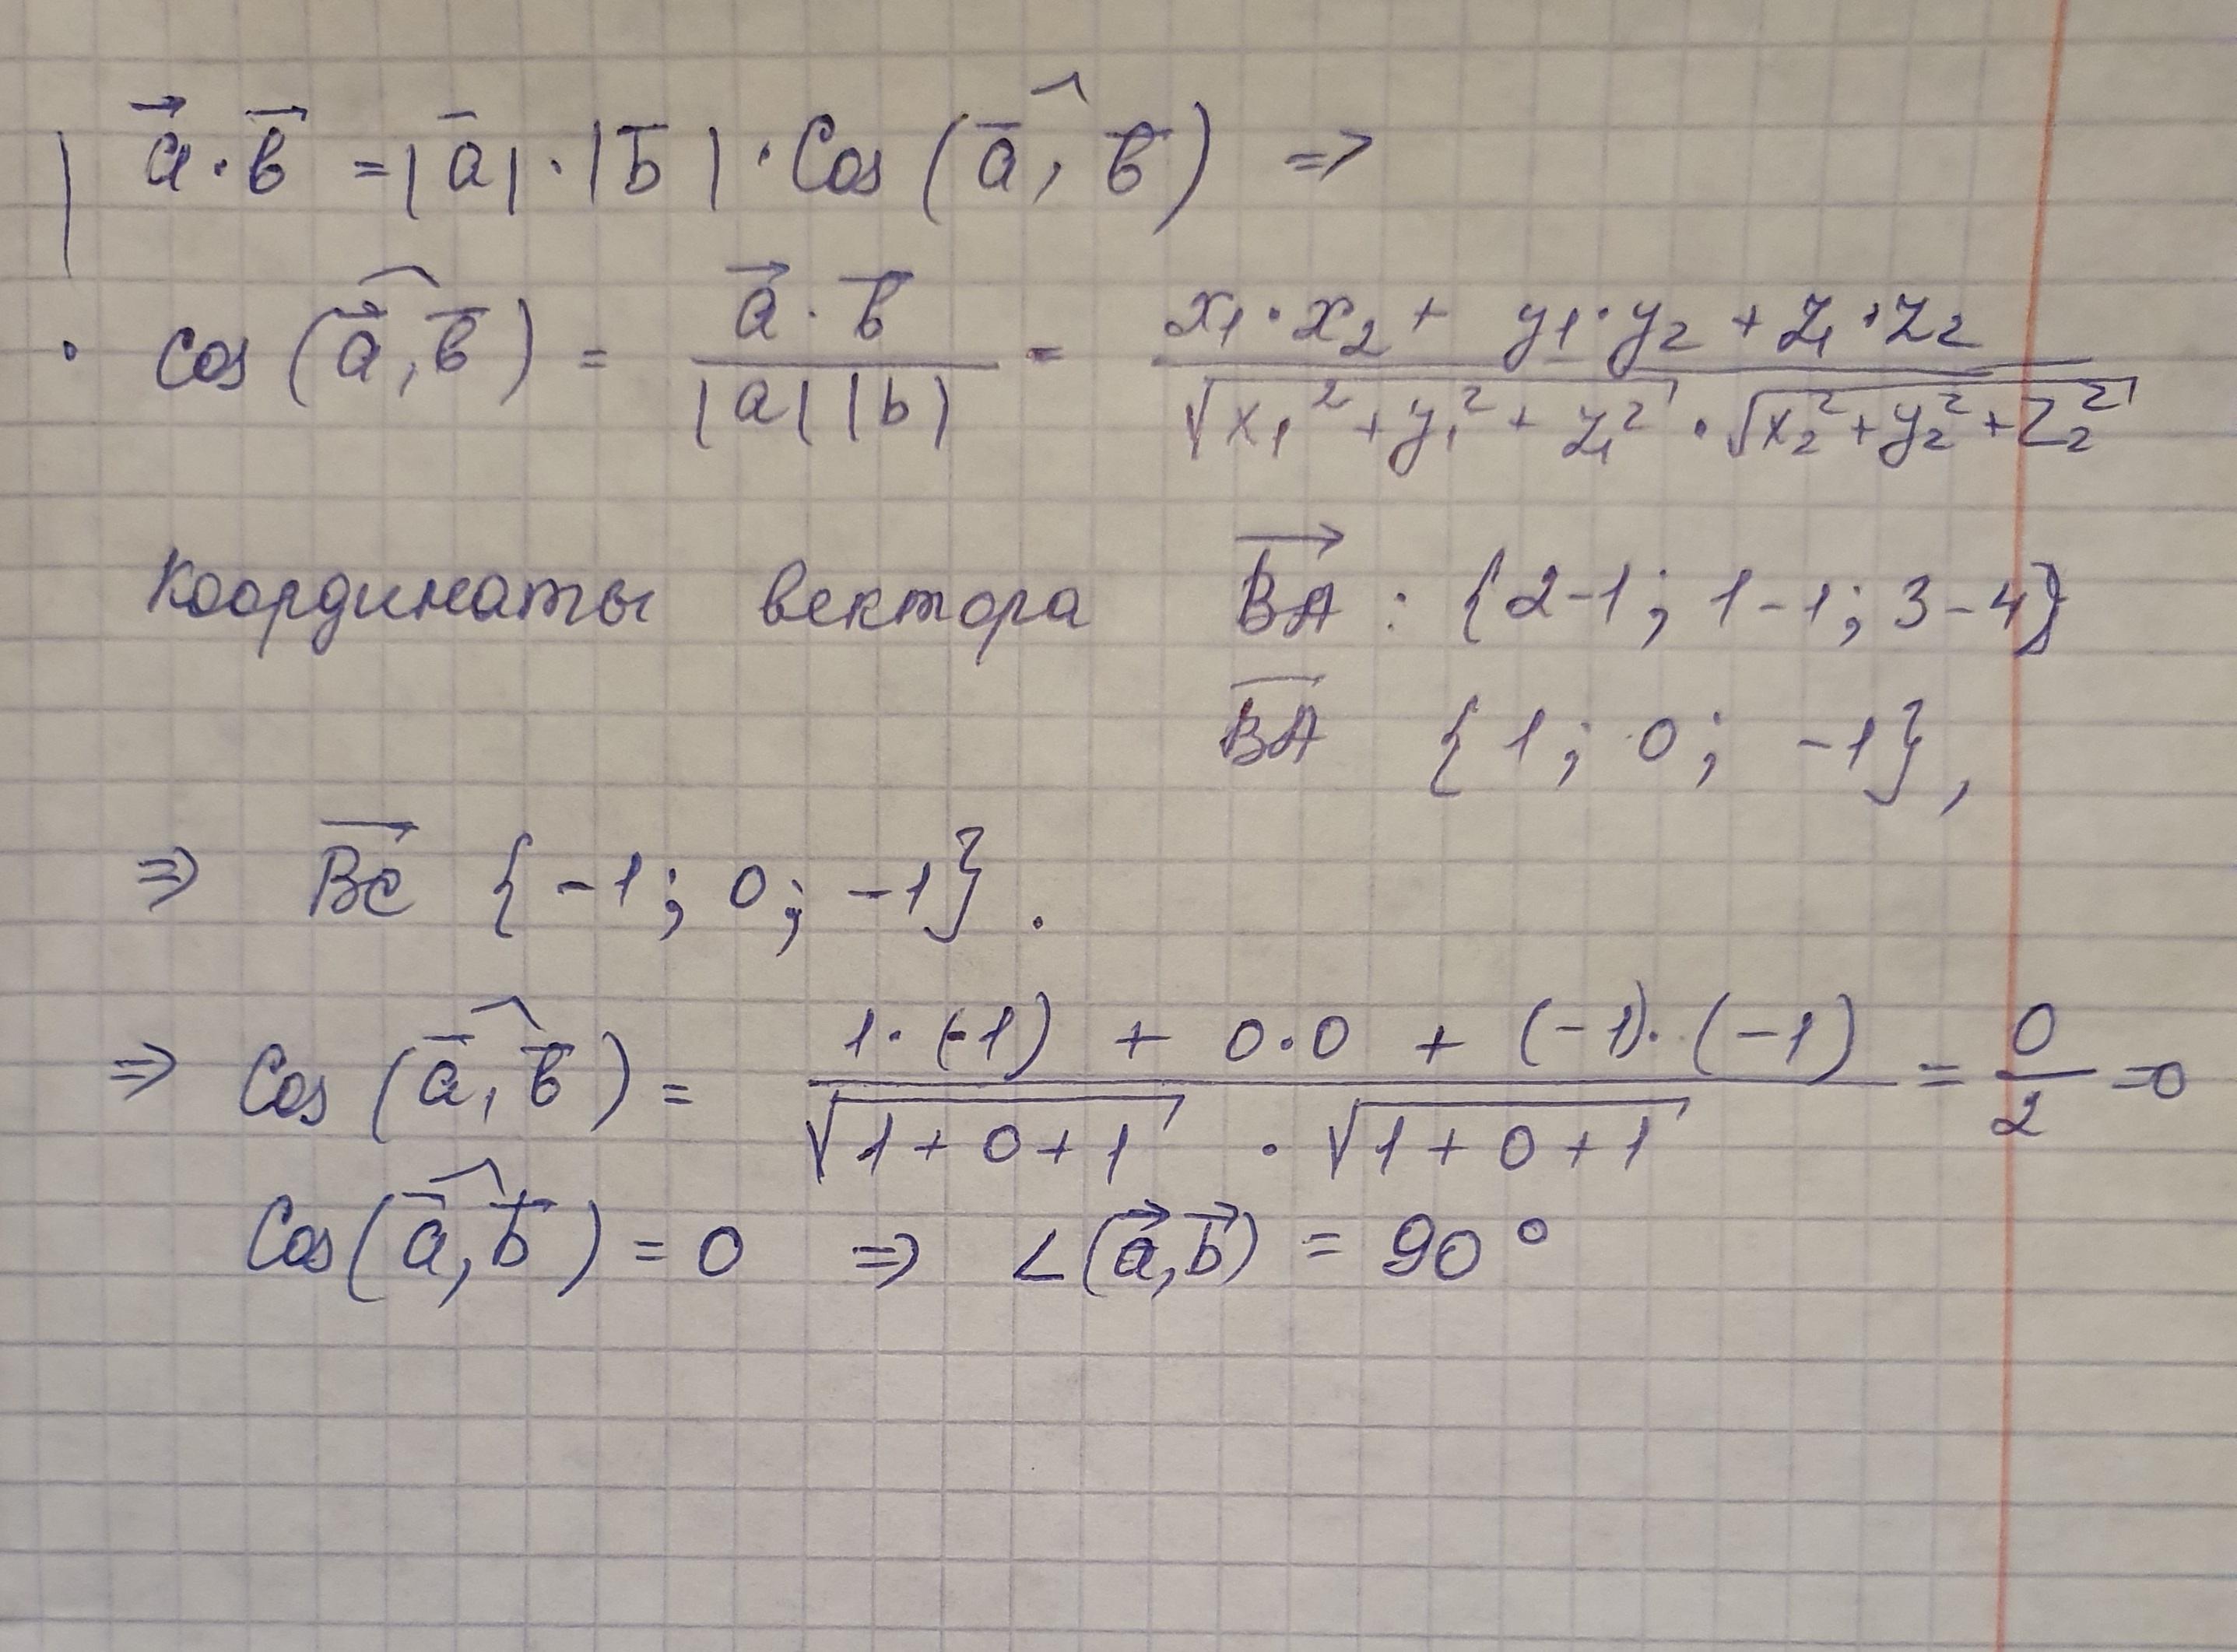 a⃗ · b⃗ = |a̅| · |b̅| · Cos (a̅, b̅) ⇒
cos (a⃗, b̅) = (a⃗ · b̅) / (|a| |b|) = (x₁ · x₂ + y₁ · y₂ + z₁ · z₂) / (√(x₁² + y₁² + z₁²) · √(x₂² + y₂² + z₂²))
Координаты вектора BA⃗ : {2-1; 1-1; 3-4}
B̅A̅ {1; 0; -1},
⇒ BC⃗ {-1; 0; -1}.
⇒ Cos (a̅, b̅) = (1 · (-1) + 0·0 + (-1) · (-1)) / (√(1+0+1) · √(1+0+1)) = 0/2 = 0
Cos (a̅, b̅) = 0 ⇒ ∠(a⃗, b⃗) = 90°